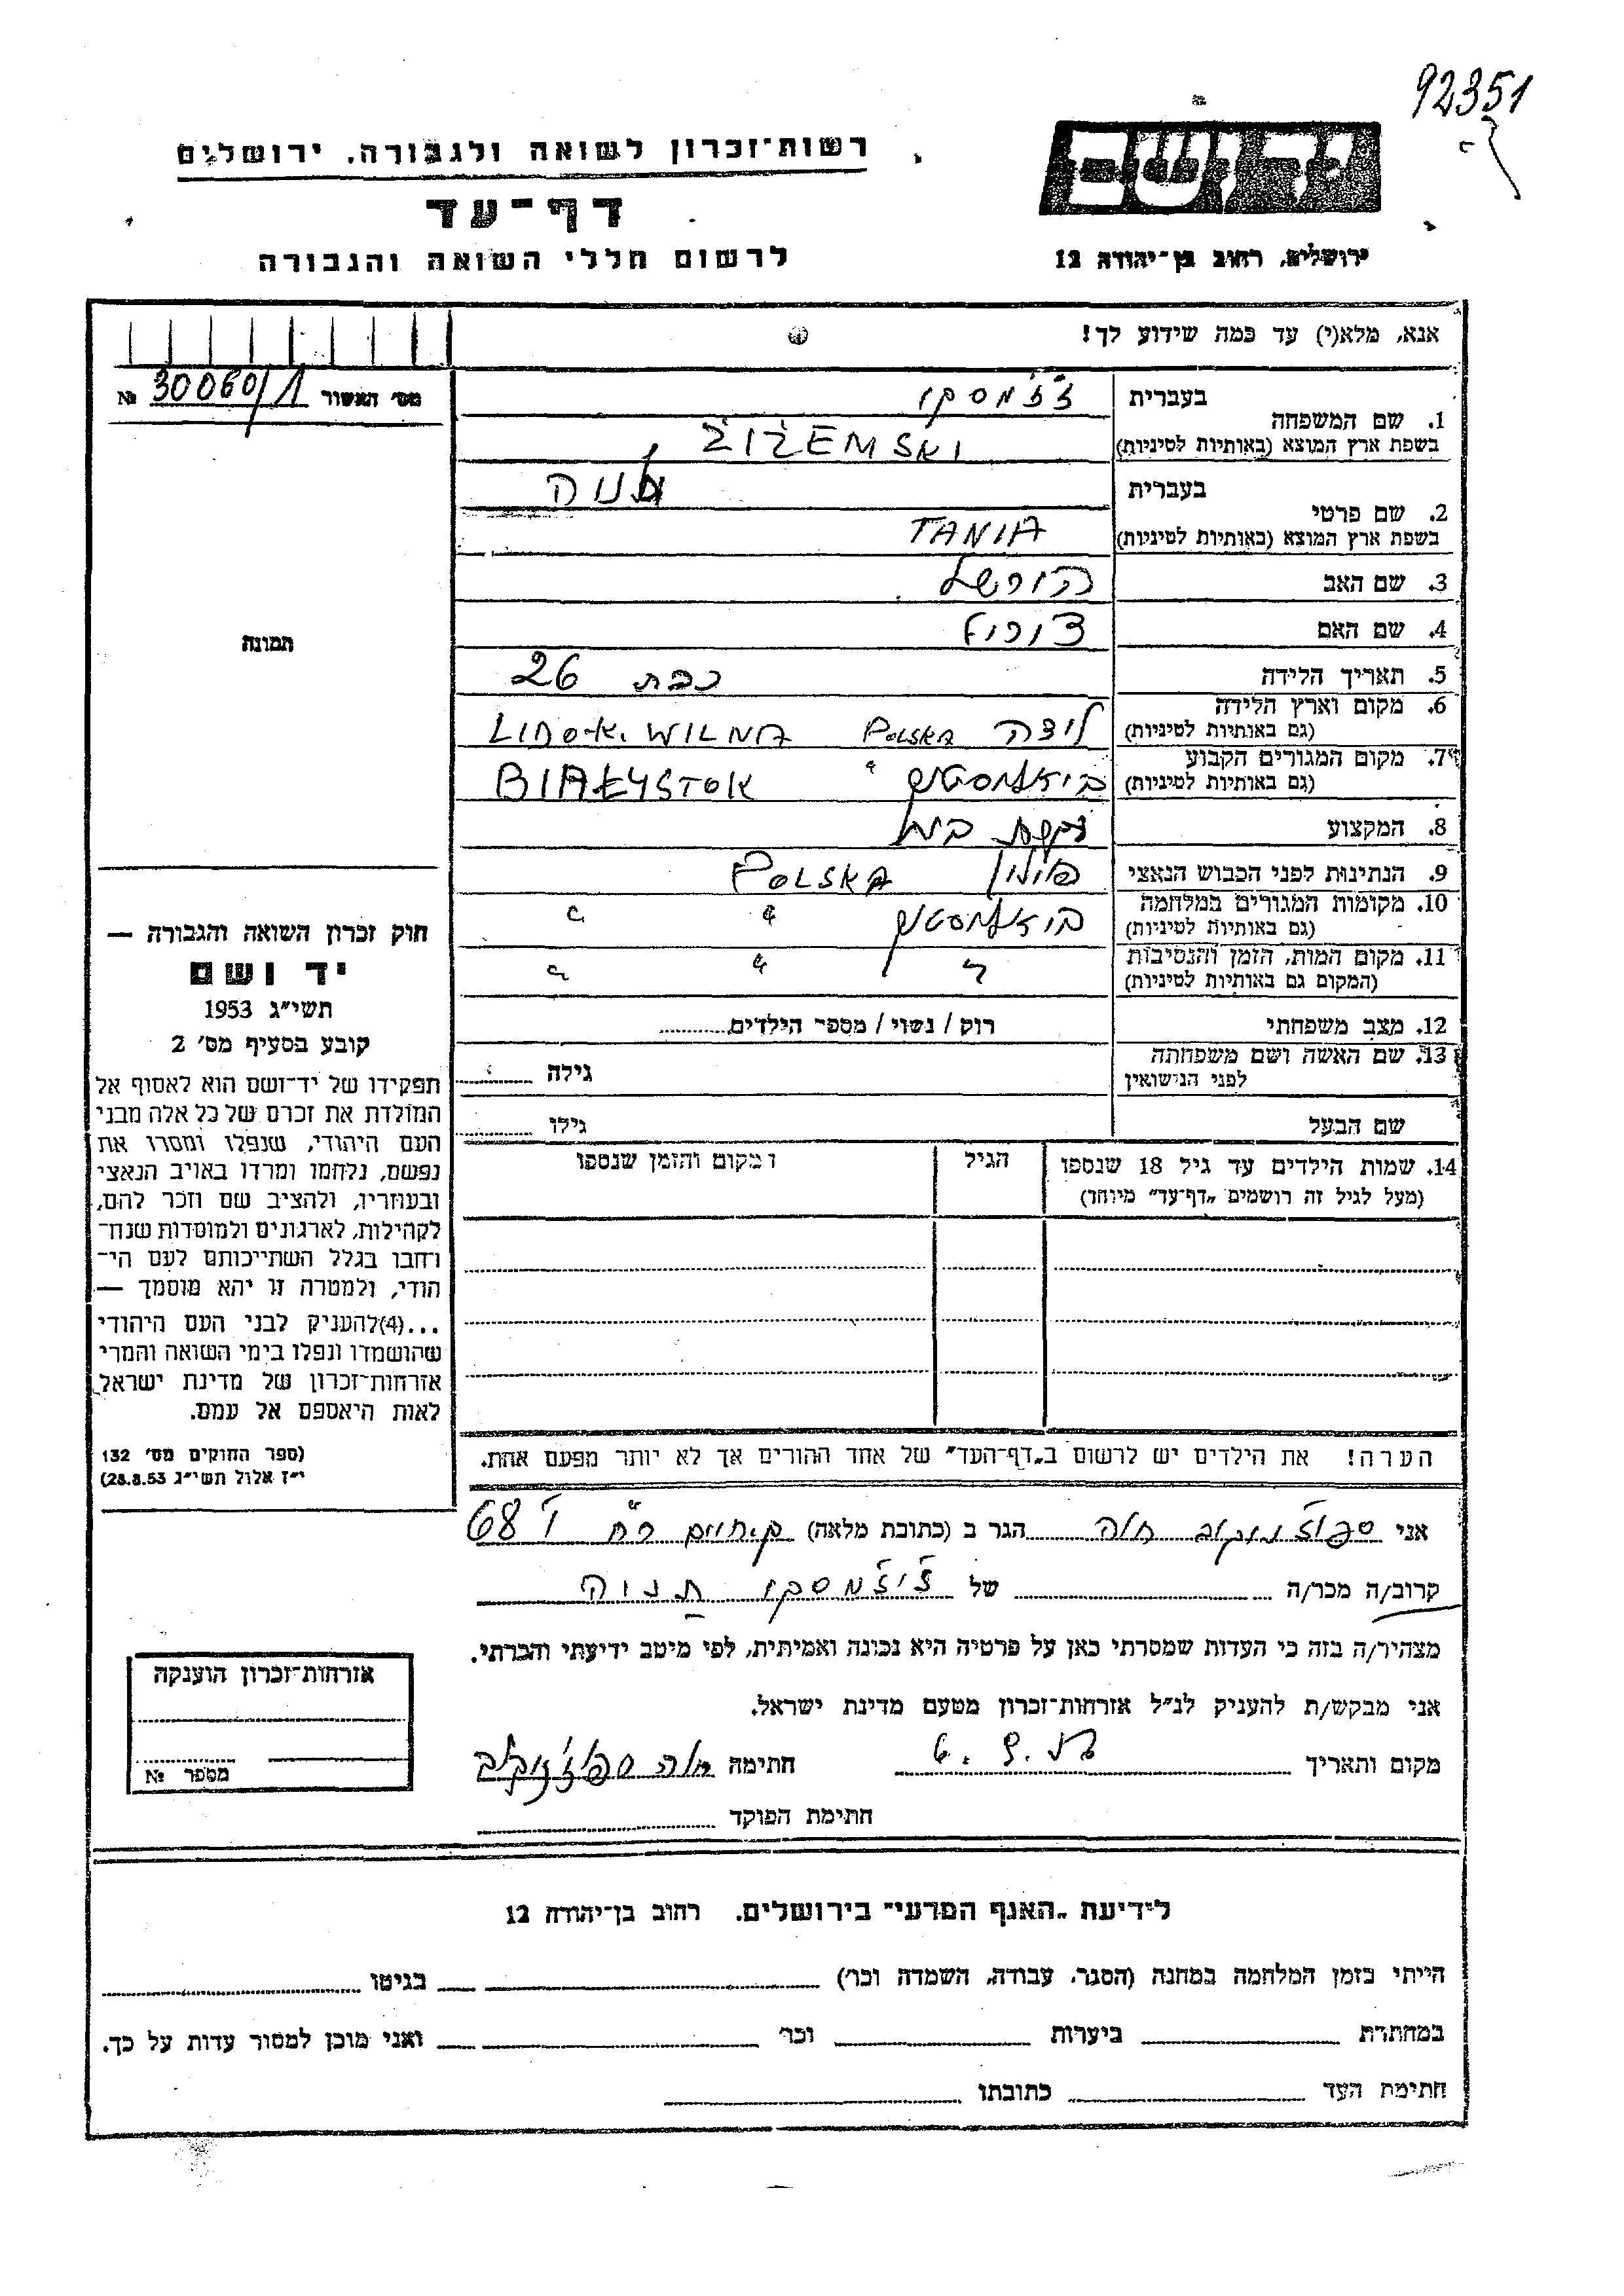 92351
רשות־זכרון לשואה ולגבורה, ירושלים
יד ושם
דף־עד
לרשום חללי השואה והגבורה
ירושלים, רחוב בן־יהודה 12
אנא, מלא(י) עד כמה שידוע לך!
מס׳ האשור № 30060/1
1. שם המשפחה
בעברית ז׳ז׳מסקי
בשפת ארץ המוצא (באותיות לטיניות) ŻIŻEMSKI
2. שם פרטי
בעברית תניה
בשפת ארץ המוצא (באותיות לטיניות) TANIA
3. שם האב הירשל
4. שם האם
5. תאריך הלידה כבת 26
6. מקום וארץ הלידה
(גם באותיות לטיניות) לידה POLSKA LIDO K. WILNA
7. מקום המגורים הקבוע
(גם באותיות לטיניות) ביאליסטוק " BIAŁYSTOK
8. המקצוע עקרת בית
9. הנתינות לפני הכבוש הנאצי פולין POLSKA
10. מקומות המגורים במלחמה
(גם באותיות לטיניות) ביאליסטוק " "
11. מקום המות, הזמן והנסיבות
(המקום גם באותיות לטיניות) " " "
12. מצב משפחתי רוק / נשוי / מספר הילדים
13. שם האשה ושם משפחתה
לפני הנישואין גילה
שם הבעל גילו
14. שמות הילדים עד גיל 18 שנספו
(מעל לגיל זה רושמים „דף־עד״ מיוחד)
הגיל
מקום והזמן שנספו
הערה! את הילדים יש לרשום ב„דף־העד״ של אחד ההורים אך לא יותר מפעם אחת.
תמונה
חוק זכרון השואה והגבורה —
יד ושם
תשי״ג 1953
קובע בסעיף מס׳ 2
תפקידו של יד־ושם הוא לאסוף אל
המולדת את זכרם של כל אלה מבני
העם היהודי, שנפלו ומסרו את
נפשם, נלחמו ומרדו באויב הנאצי
ובעוזריו, ולהציב שם וזכר להם,
לקהילות, לארגונים ולמוסדות שנח־
רחבו בגלל השתייכותם לעם הי־
הודי, ולמטרה זו יהא מוסמך —
...(4)להעניק לבני העם היהודי
שהושמדו ונפלו בימי השואה והמרי
אזרחות־זכרון של מדינת ישראל
לאות היאספם אל עמם.
(ספר החוקים מס׳ 132
י״ז אלול תשי״ג 28.8.53)
אני חוה הגר ב (כתובת מלאה) 68
קרוב/ה מכר/ה של ז׳יז׳מסקי תניה
מצהיר/ה בזה כי העדות שמסרתי כאן על פרטיה היא נכונה ואמיתית, לפי מיטב ידיעתי והכרתי.
אני מבקש/ת להעניק לנ״ל אזרחות־זכרון מטעם מדינת ישראל.
מקום ותאריך חתימה חוה
חתימת הפוקד
אזרחות־זכרון הוענקה
מספר №
לידיעת „האגף הפרעי״ בירושלים. רחוב בן־יהודה 12
הייתי בזמן המלחמה במחנה (הסגר, עבודה, השמדה וכו׳) בגיטו
במחתרת ביערות וכו׳ ואני מוכן למסור עדות על כך.
חתימת העד כתובתו